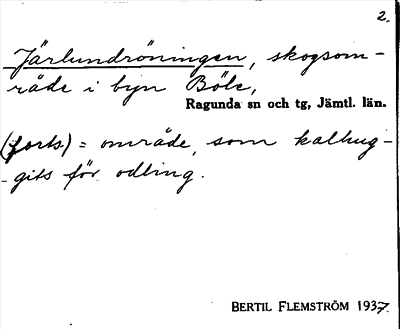 2.
Järlundröningen, skogsom-
råde i byn Böle,
Ragunda sn och tg, Jämtl. län.
(forts) = område, som kalhug-
gits för odling.
BERTIL FLEMSTRÖM 1937.